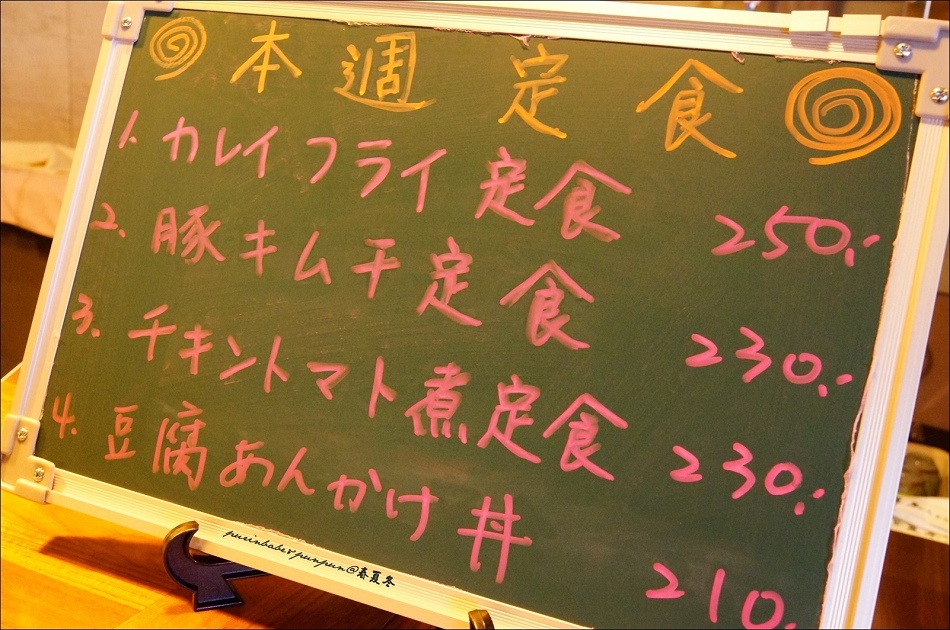 本週定食
1. カレイフライ定食 250.-
2. 豚キムチ定食 230.-
3. チキントマト煮定食 230.-
4. 豆腐あんかけ丼 210.
purinbabe♥punpun@春夏冬